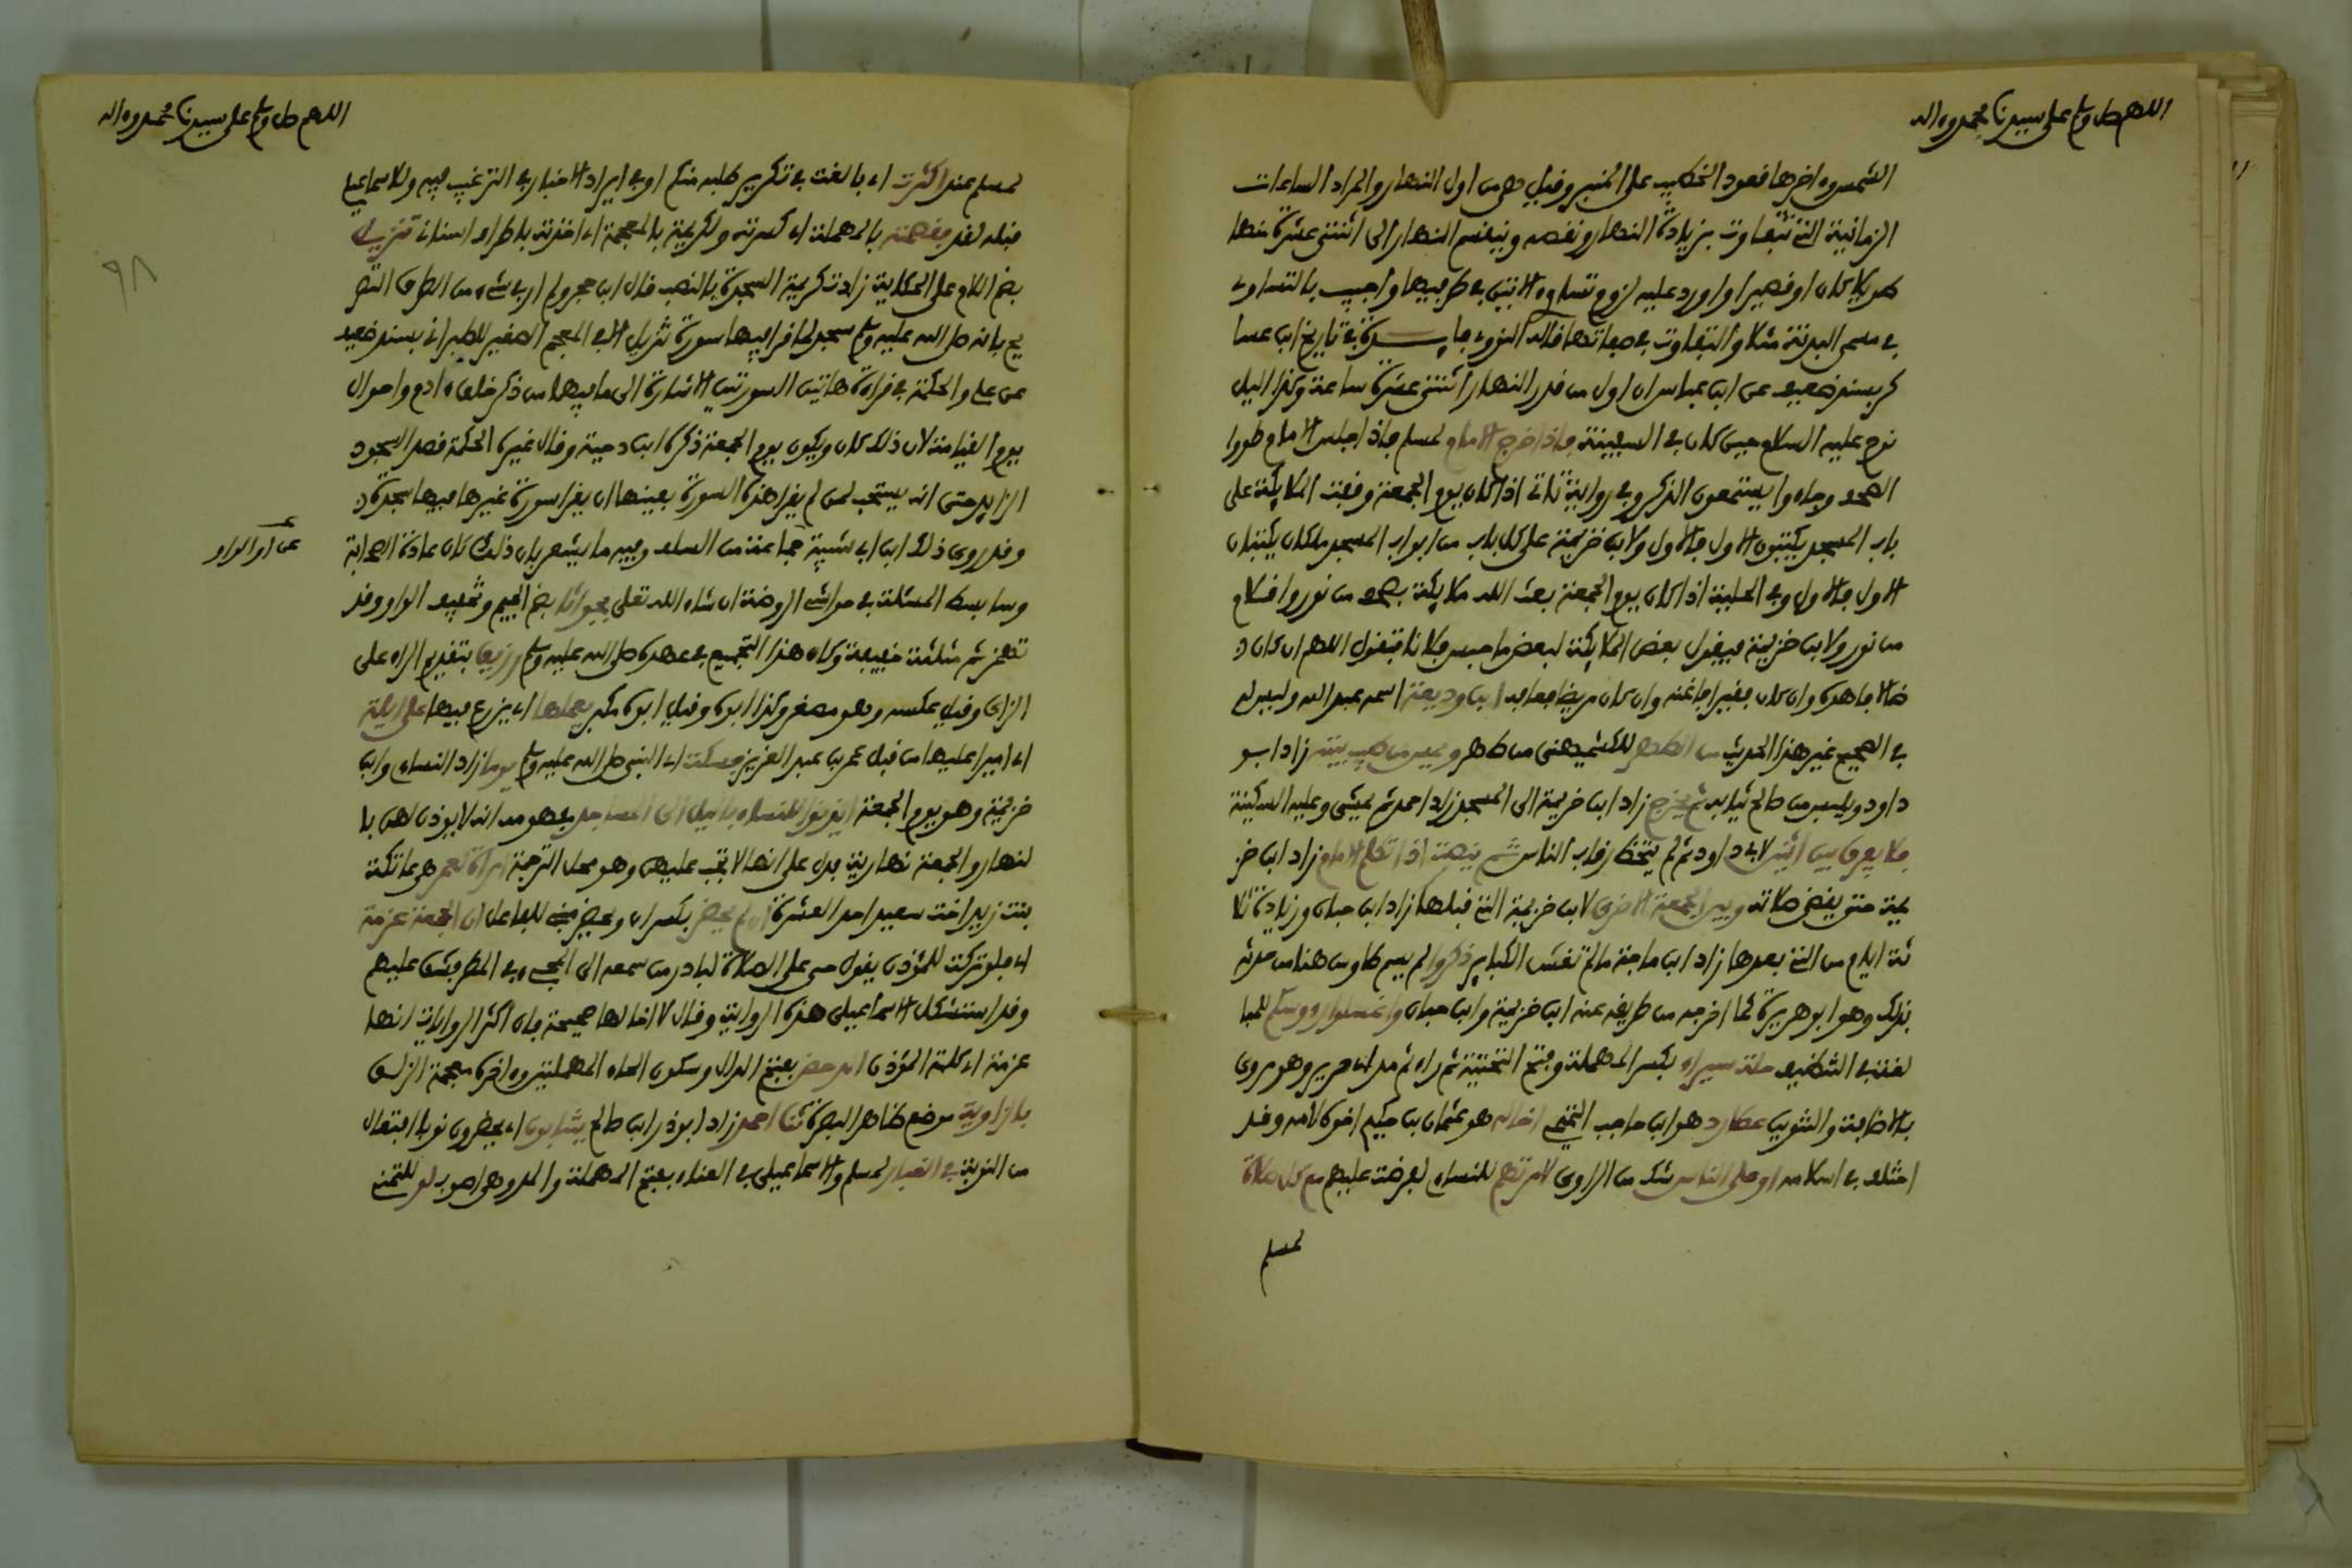 اللهم صل وسلم على سيدنا محمد وءاله
الشمس وءاخرها فعود الخطيب على المنبر وفيل هى من اول النهار والمراد الساعات
الزمانية التى تتفاوت بزيادة النهار ونفصه وينفسم النهار الى اثنتى عشرة منها
طويلا كان او فصيرا واورد عليه لزوم تساوى الاتيين فى طرفيها واجيب بالتساوى
فى مسمى البدنة مثلا والتفاوت فى صفاتها فاله النووى فايدة فى تاريخ ابن عسا
كر بسند ضعيف عن ابن عباس ان اول من فدر النهار اثنتى عشرة ساعة وكذا اليل
نوح عليه السلام حين كان فى السفينة فاذا خرج الامام لمسلم فاذا جلس الامام طووا
الصحف وجاءوا يستمعون الذكر وفى رواية تاتى اذا كان يوم الجمعة وففت الملايكة على
باب المسجد يكتبون الاول فالاول ولابن خزيمة على كل باب من ابواب المسجد ملكان يكتبان
الاول فالاول وفى الحلية اذا كان يوم الجمعة بعث الله ملايكة بصحف من نور وافلام
من نور ولابن خزيمة فيفول بعض الملايكة لبعض ما حبس فلانا فتفول اللهم ان كان
ضالا فاهده وان كان ففيرا فاغنه وان كان مريضا فعافه ابن وديعة اسمه عبد الله وليس له
فى الصحيح غير هذا الحديث من الطهر للكشميهنى من طهر ويمس من طيب بيته زاد ابو
داود ويلبس من صالح ثيابه ثم يخرج زاد ابن خزيمة الى المسجد زاد احمد ثم يمشى وعليه السكينة
فلا يفرق بين اثنين لابى داود ثم لم يتخط رفاب الناس ثم ينصت اذا تكلم الامام زاد ابن خز
يمة حتى يفضى صلاته وبين الجمعة الاخرى لابن خزيمة التى فبلها زاد ابن حبان وزيادة ثلا
ثة ايام من التى بعدها زاد ابن ماجة ما لم تغش الكباير ذكروا لم يسم طاوس هنا من حدثه
بذلك وهو ابو هريرة كما اخرجه من طريفه عنه ابن خزيمة وابن حبان واغسلوا رءوسكم للمبا
لغة فى التنظيف حلة سيراء بكسر المهملة وفتح التحتية ثم راء ثم مد اى حرير وهو مروى
بالاضافة والتنوين عطارد هو ابن حاجب التميمى اخا له هو عثمان بن حكيم اخوه لامه وفد
اختلف فى اسلامه او على الناس شك من الراوى لامرتهم للنساءى لفرضت عليهم مع كل صلاة
لمسلم
اللهم صل وسلم على سيدنا محمد وءاله
لمسلم عند اكثرت اى بالغت فى تكرير طلبه منكم او فى ايراد الاخبار فى الترغيب فيه وللاسماعيلى
فبله لفد ففصمته بالمهملة اى كسرته ولكريمة بالمعجمة اى اخذته باطراف اسنانى تنزيل
بضم اللام على الحكاية زادت كريمة السجدة بالنصب فال ابن حجر ولم ار فى شىء من الطرق التصر
يح بانه صلى الله عليه وسلم سجد لما فرا فيها سورة تنزيل الا فى المعجم الصغير للطبرانى بسند ضعيف
عن على والحكمة فى فراءة هاتين السورتين الاشارة الى ما فيهما من ذكر خلق ءادم واحوال
يوم الفيامة لان ذلك كان ويكون يوم الجمعة ذكره ابن دحية وفال غيره الحكمة فصد السجود
الزايد حتى انه يستحب لمن لم يفرا هذه السورة بعينها ان يفرا سورة غيرها فيها سجدة
وفد روى ذلك ابن ابى شيبة عن جماعة من السلف وفيه ما يشعر بان ذلك كان عادة الصحابة
وسابسط المسئلة فى حواشى الروضة ان شاء الله تعلى بجواثا بضم الجيم وتخفيف الواو وفد
تهمز ثم مثلثة خفيفة وكان هذا التجميع فى عهده صلى الله عليه وسلم رزيق بتفديم الراء على
الزاى وفيل عكسه وهو مصغر وكذا ابوه وفيل ابوه مكبر يعملها اى يزرع فيها على ايلة
اى اميرا عليها من فبل عمر بن عبد العزيز فسكت اى النبى صلى الله عليه وسلم يوما زاد النساءى وابن
خزيمة وهو يوم الجمعة ايذنوا للنساء باليل الى المساجد مفهومه انه لا يوذن لهن با
لنهار والجمعة نهارية فدل على انها لا تجب عليهن وهو محل الترجمة امراة لعمر هى عاتكة
بنت زيد اخت سعيد احد العشرة ان لم يحضر بكسر ان ويحضر مبنى للفاعل ان الجمعة عزمة
اى فلو تركت المؤذن يفول حى على الصلاة لبادر من سمعه الى المجىء فى المطر فيشق عليهم
وفد استشكل الاسماعيلى هذه الرواية وفال لا اخالها صحيحة فان اكثر الروايات انها
عزمة اى كلمة المؤذن الدحض بفتح الدال وسكون الحاء المهملتين وءاخره معجمة الزلق
بالزاوية موضع ظاهر البصرة ثنا احمد زاد ابو ذر ابن صالح ينتابون اى يحضرون نوبا افتعال
من النوبة فى الغبار لمسلم والاسماعيلى فى العباء بفتح المهملة والمد وهى اصوب لو للتمنى
عن
او الواو
٩٨